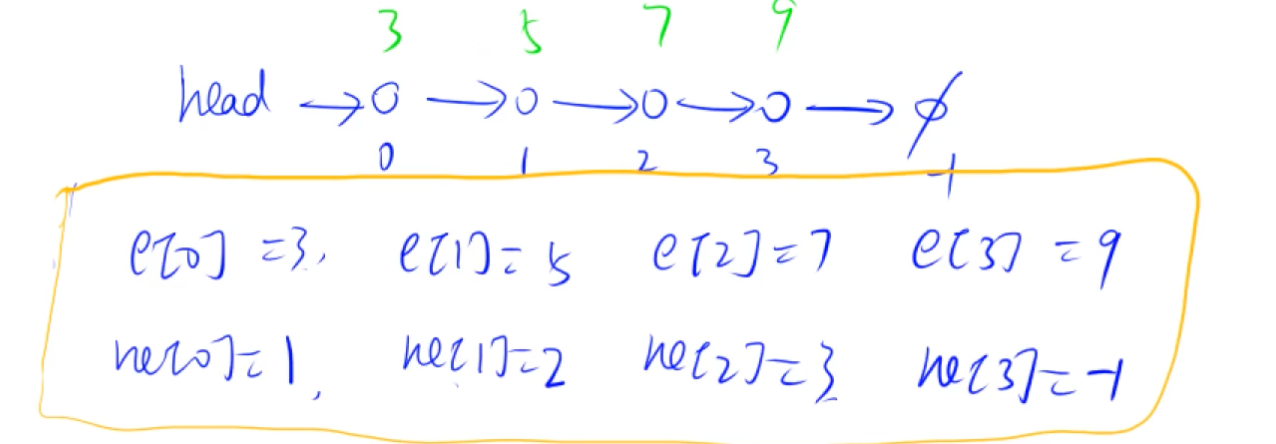 3 5 7 9
head → 0 → 0 → 0 → 0 → ∅
0 1 2 3 -1
e[0] = 3, e[1] = 5 e[2] = 7 e[3] = 9
ne[0] = 1, ne[1] = 2 ne[2] = 3 ne[3] = -1